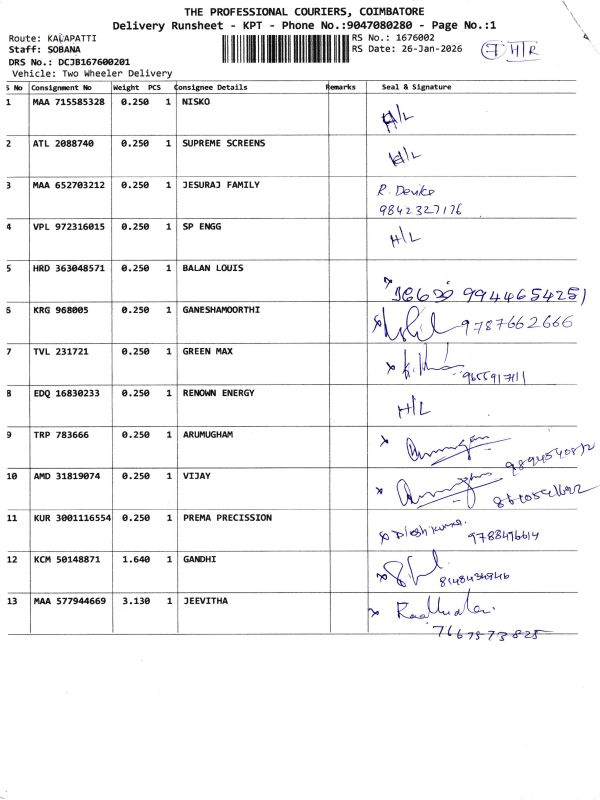 THE PROFESSIONAL COURIERS, COIMBATORE
Delivery Runsheet - KPT - Phone No.:9047080280 - Page No.:1
Route: KALAPATTI
Staff: SOBANA
DRS No.: DCJB167600201
Vehicle: Two Wheeler Delivery
RS No.: 1676002
RS Date: 26-Jan-2026
7 H/R
S No Consignment No Weight PCS Consignee Details Remarks Seal & Signature
1 MAA 715585328 0.250 1 NISKO H/L
2 ATL 2088740 0.250 1 SUPREME SCREENS H/L
3 MAA 652703212 0.250 1 JESURAJ FAMILY R. Devika
9842327176
4 VPL 972316015 0.250 1 SP ENGG H/L
5 HRD 363048571 0.250 1 BALAN LOUIS 9944654251
6 KRG 968005 0.250 1 GANESHAMOORTHI 9787662666
7 TVL 231721 0.250 1 GREEN MAX 9655917111
8 EDQ 16830233 0.250 1 RENOWN ENERGY H/L
9 TRP 783666 0.250 1 ARUMUGHAM Arumugam
10 AMD 31819074 0.250 1 VIJAY Arumugam
11 KUR 3001116554 0.250 1 PREMA PRECISSION
9788496614
12 KCM 50148871 1.640 1 GANDHI
13 MAA 577944669 3.130 1 JEEVITHA
7667573825